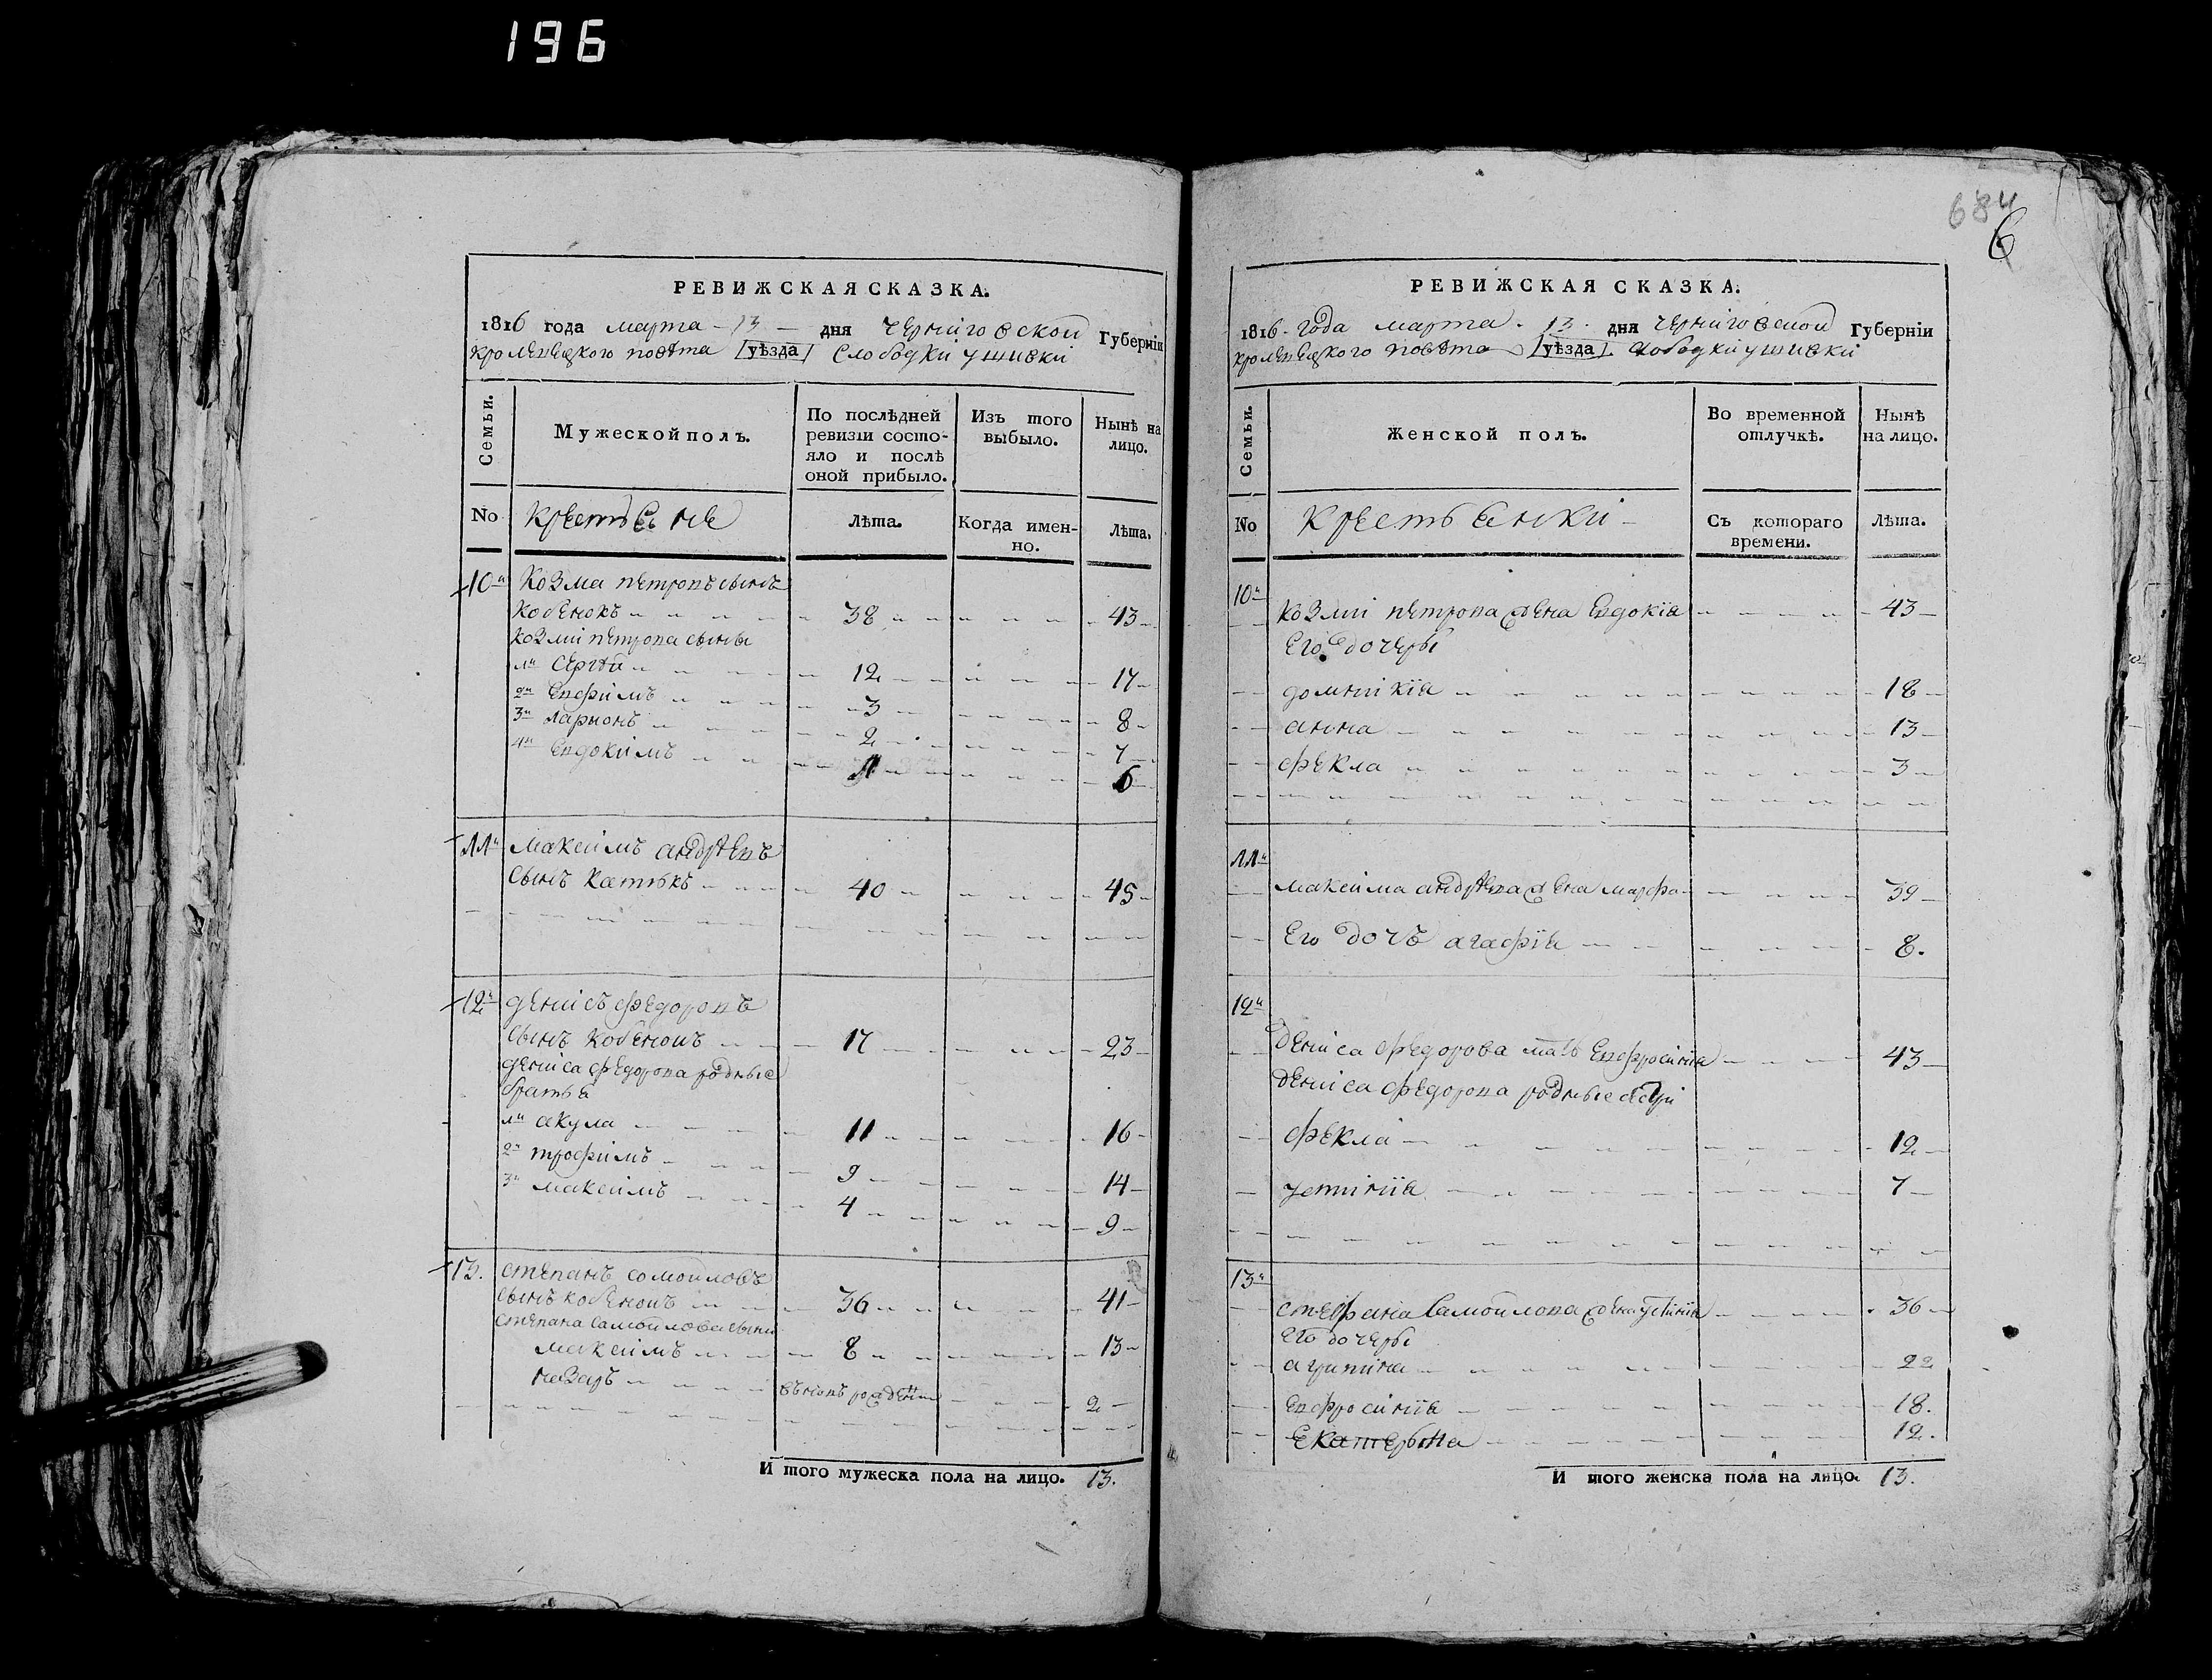 196
РЕВИЖСКАЯ СКАЗКА.
1816 года марта 13 дня черніговской Губерніи
кролевецкого повѣта [уѣзда] слободки ушивки
Семьи.
Мужеской полъ.
По послѣдней ревизіи состояло и послѣ оной прибыло.
Изъ того выбыло.
Нынѣ на лицо.
No
крестьяне
Лѣта.
Когда именно.
Лѣта.
10й Козма петровъ сынъ
кобенокъ 38 43
козми петрова сыны
1й Сергѣй 12 17
2й Евфимъ 3 8
3й ларионъ 2 7
4й Евдокимъ 1 6
11й максимъ андрѣевъ
сынъ 40 45
12й денисъ федоровъ
сынъ кобенокъ 17 23
дениса федорова родные
братья
1й акула 11 16
2й трофимъ 9 14
3й максимъ 4 9
13. степанъ сомойловъ
сынъ кобенокъ 36 41
степана самойлова сыны
максимъ 8 13
назаръ 2
И того мужеска пола на лицо. 13.
684
6
РЕВИЖСКАЯ СКАЗКА.
1816 года марта 13 дня черніговской Губерніи
кролевецкого повѣта [уѣзда] слободки ушивки
Семьи.
Женской полъ.
Во временной отлучкѣ.
Нынѣ на лицо.
No
крестьянки
Съ котораго времени.
Лѣта.
10й
козми петрова жена Евдокія 43
его дочери
домникія 18
анна 13
фекла 3
11й
максима андрѣева жена марфа 39
Его дочь агафія 8.
12й
дениса федорова мать Евфросинія 43
дениса федорова родные сестри
фекла 12
устинія 7
13й
стефана Самойлова жена устинія 36
его дочери
агрипина 22
евфросинія 18.
Екатерина 12.
И того женска пола на лицо. 13.